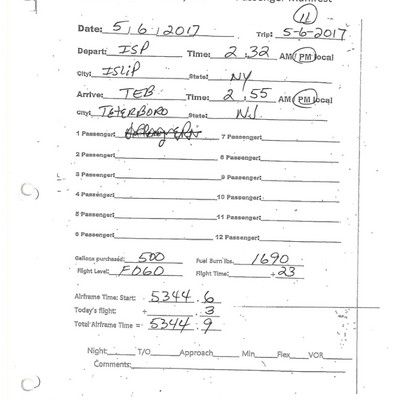 Passenger Manifest
11
Date: 5, 6, 2017 Trip: 5-6-2017
Depart: ISP Time: 2,32 AM/PM local
City: ISLIP State: NY
Arrive: TEB Time: 2,55 AM/PM local
City: TETERBORO State: NJ
1 Passenger: 7 Passenger:
2 Passenger: 8 Passenger:
3 Passenger: 9 Passenger:
4 Passenger: 10 Passenger:
5 Passenger: 11 Passenger:
6 Passenger: 12 Passenger:
Gallons purchased: 500 Fuel Burn lbs. 1690
Flight Level: F060 Flight Time: +23
Airframe Time: Start: 5344.6
Today's flight: + .3
Total Airframe Time = 5344.9
Night: T/O Approach Min Flex VOR
Comments: